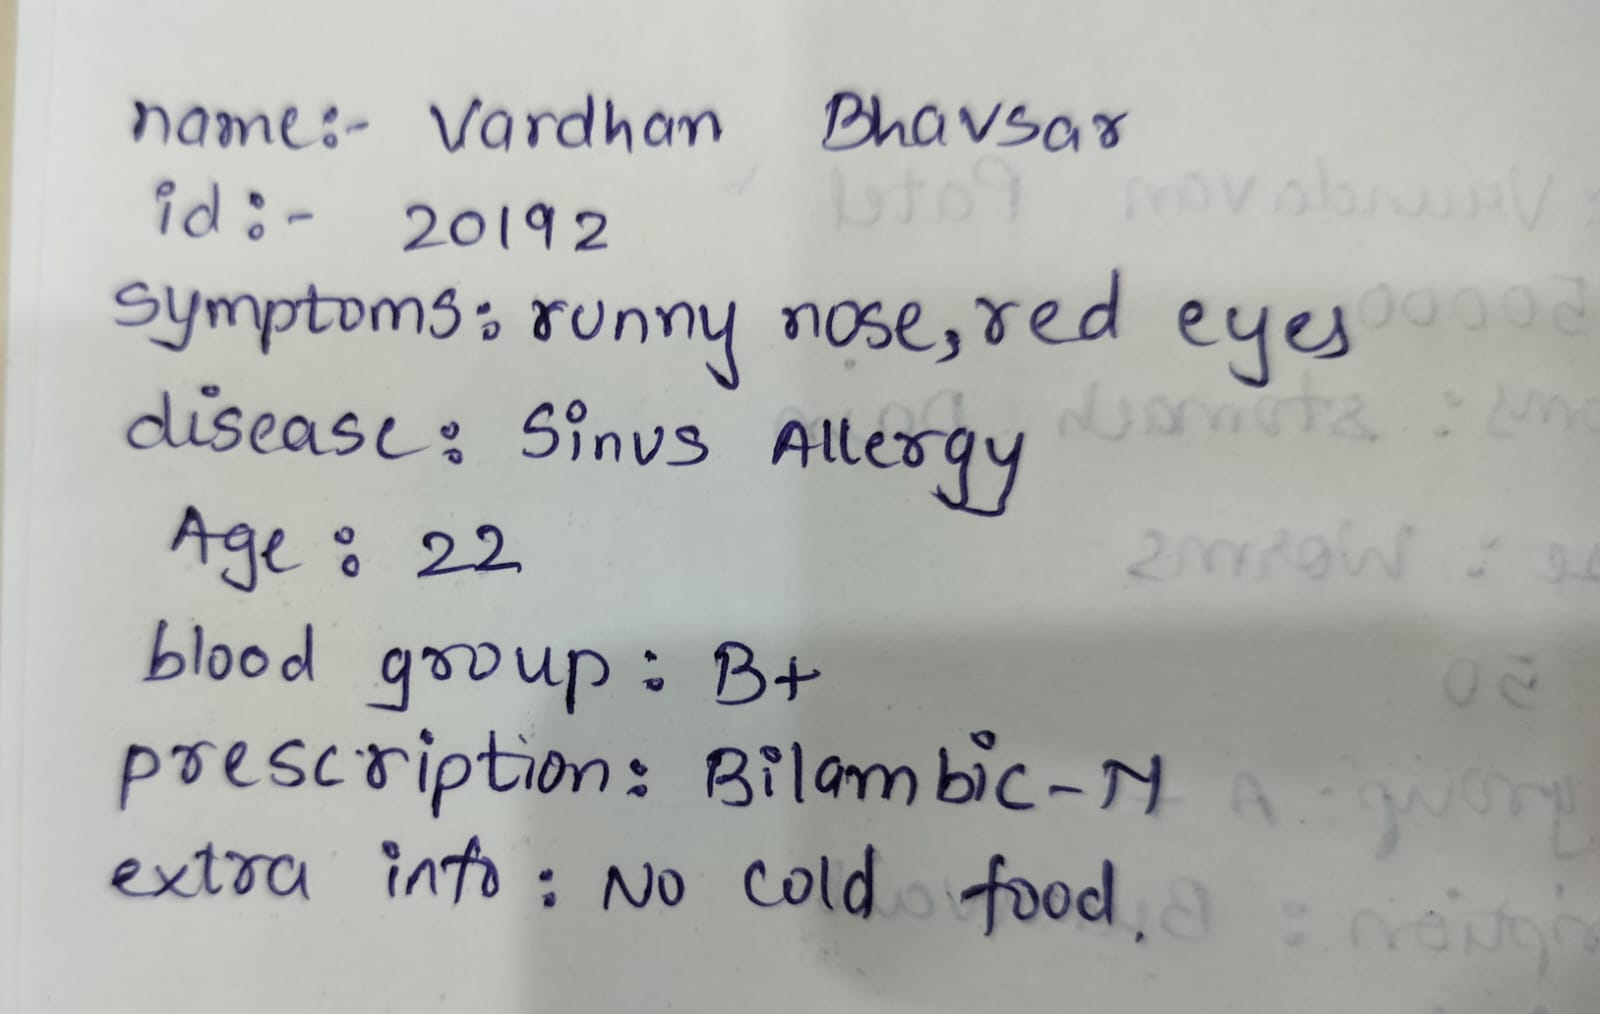 name:- Vardhan Bhavsar
id:- 20192
symptoms: runny nose, red eyes
disease: Sinus Allergy
Age : 22
blood group : B+
prescription: Bilambic-M
extra info : No cold food.